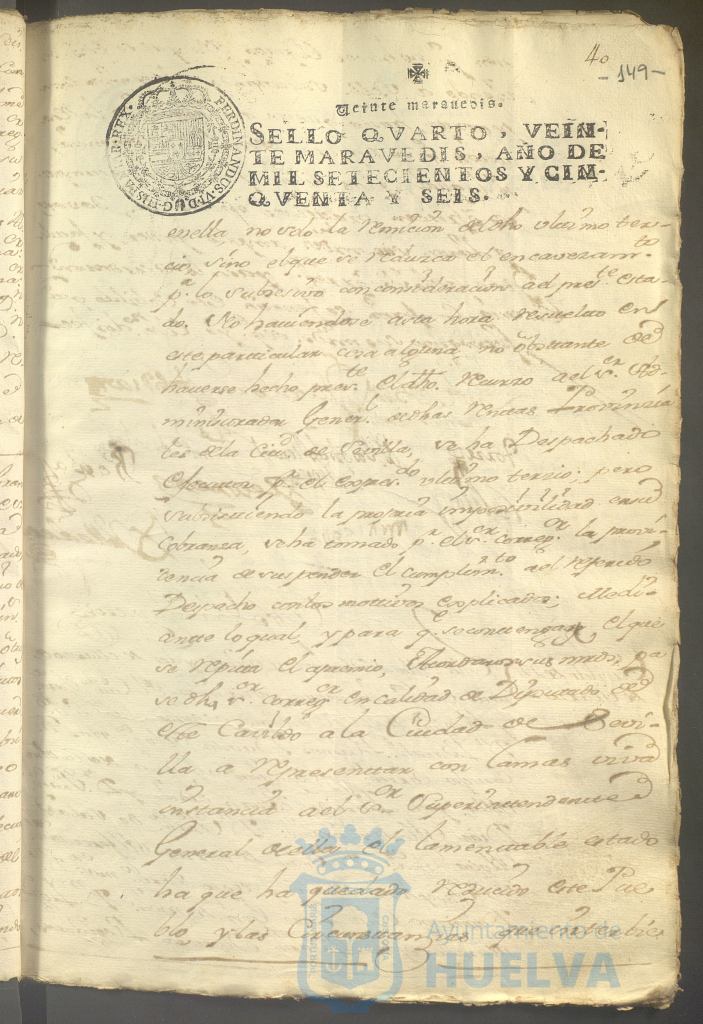 40
- 149 -
Veinte maravedis.
SELLO QVARTO, VEIN-
TE MARAVEDIS, AÑO DE
MIL SETECIENTOS Y CIN-
QVENTA Y SEIS.
FERDINANDUS·VI·D·G·HISPANIAR·REX·
enella no solo la remision dedho vltimo ter-
cio, sino el que se reduzca el encavezam.to
p.a lo subcesivo con consideracion ael pres.te esta-
do. No haviendose asta hora resuelto en
este particular cosa alguna, no obstante de
haverse hecho pres.te el dho. recurso ael s.or Ad-
ministrador Gener.l dedhas rentas Provincia-
les dela Ciu.d de Sevilla, se ha Despachado
Executor p.r el expres.do vltimo terzio; pero
subsistiendo la propria imposivilidad en su
cobranza, se ha tomado p.r el s.or correg.or la provi-
dencia de suspender el cumplim.to ael referido
Despacho con los motivos explicados; Medi-
ante lo qual, y para q.e se contenga, el que
se repita el apremio, Acordaron sus mrds. pa-
se dho s.or correg.or en calidad de Diputado de
este Cavildo a la Ciudad de Sevi-
lla a representar con la mas viva
instancia ael s.or Superintendente
General de ella el lamentable estado
ha que ha quedado reducido este Pue-
blo, y las Circunstancias
Ayuntamiento de
HUELVA